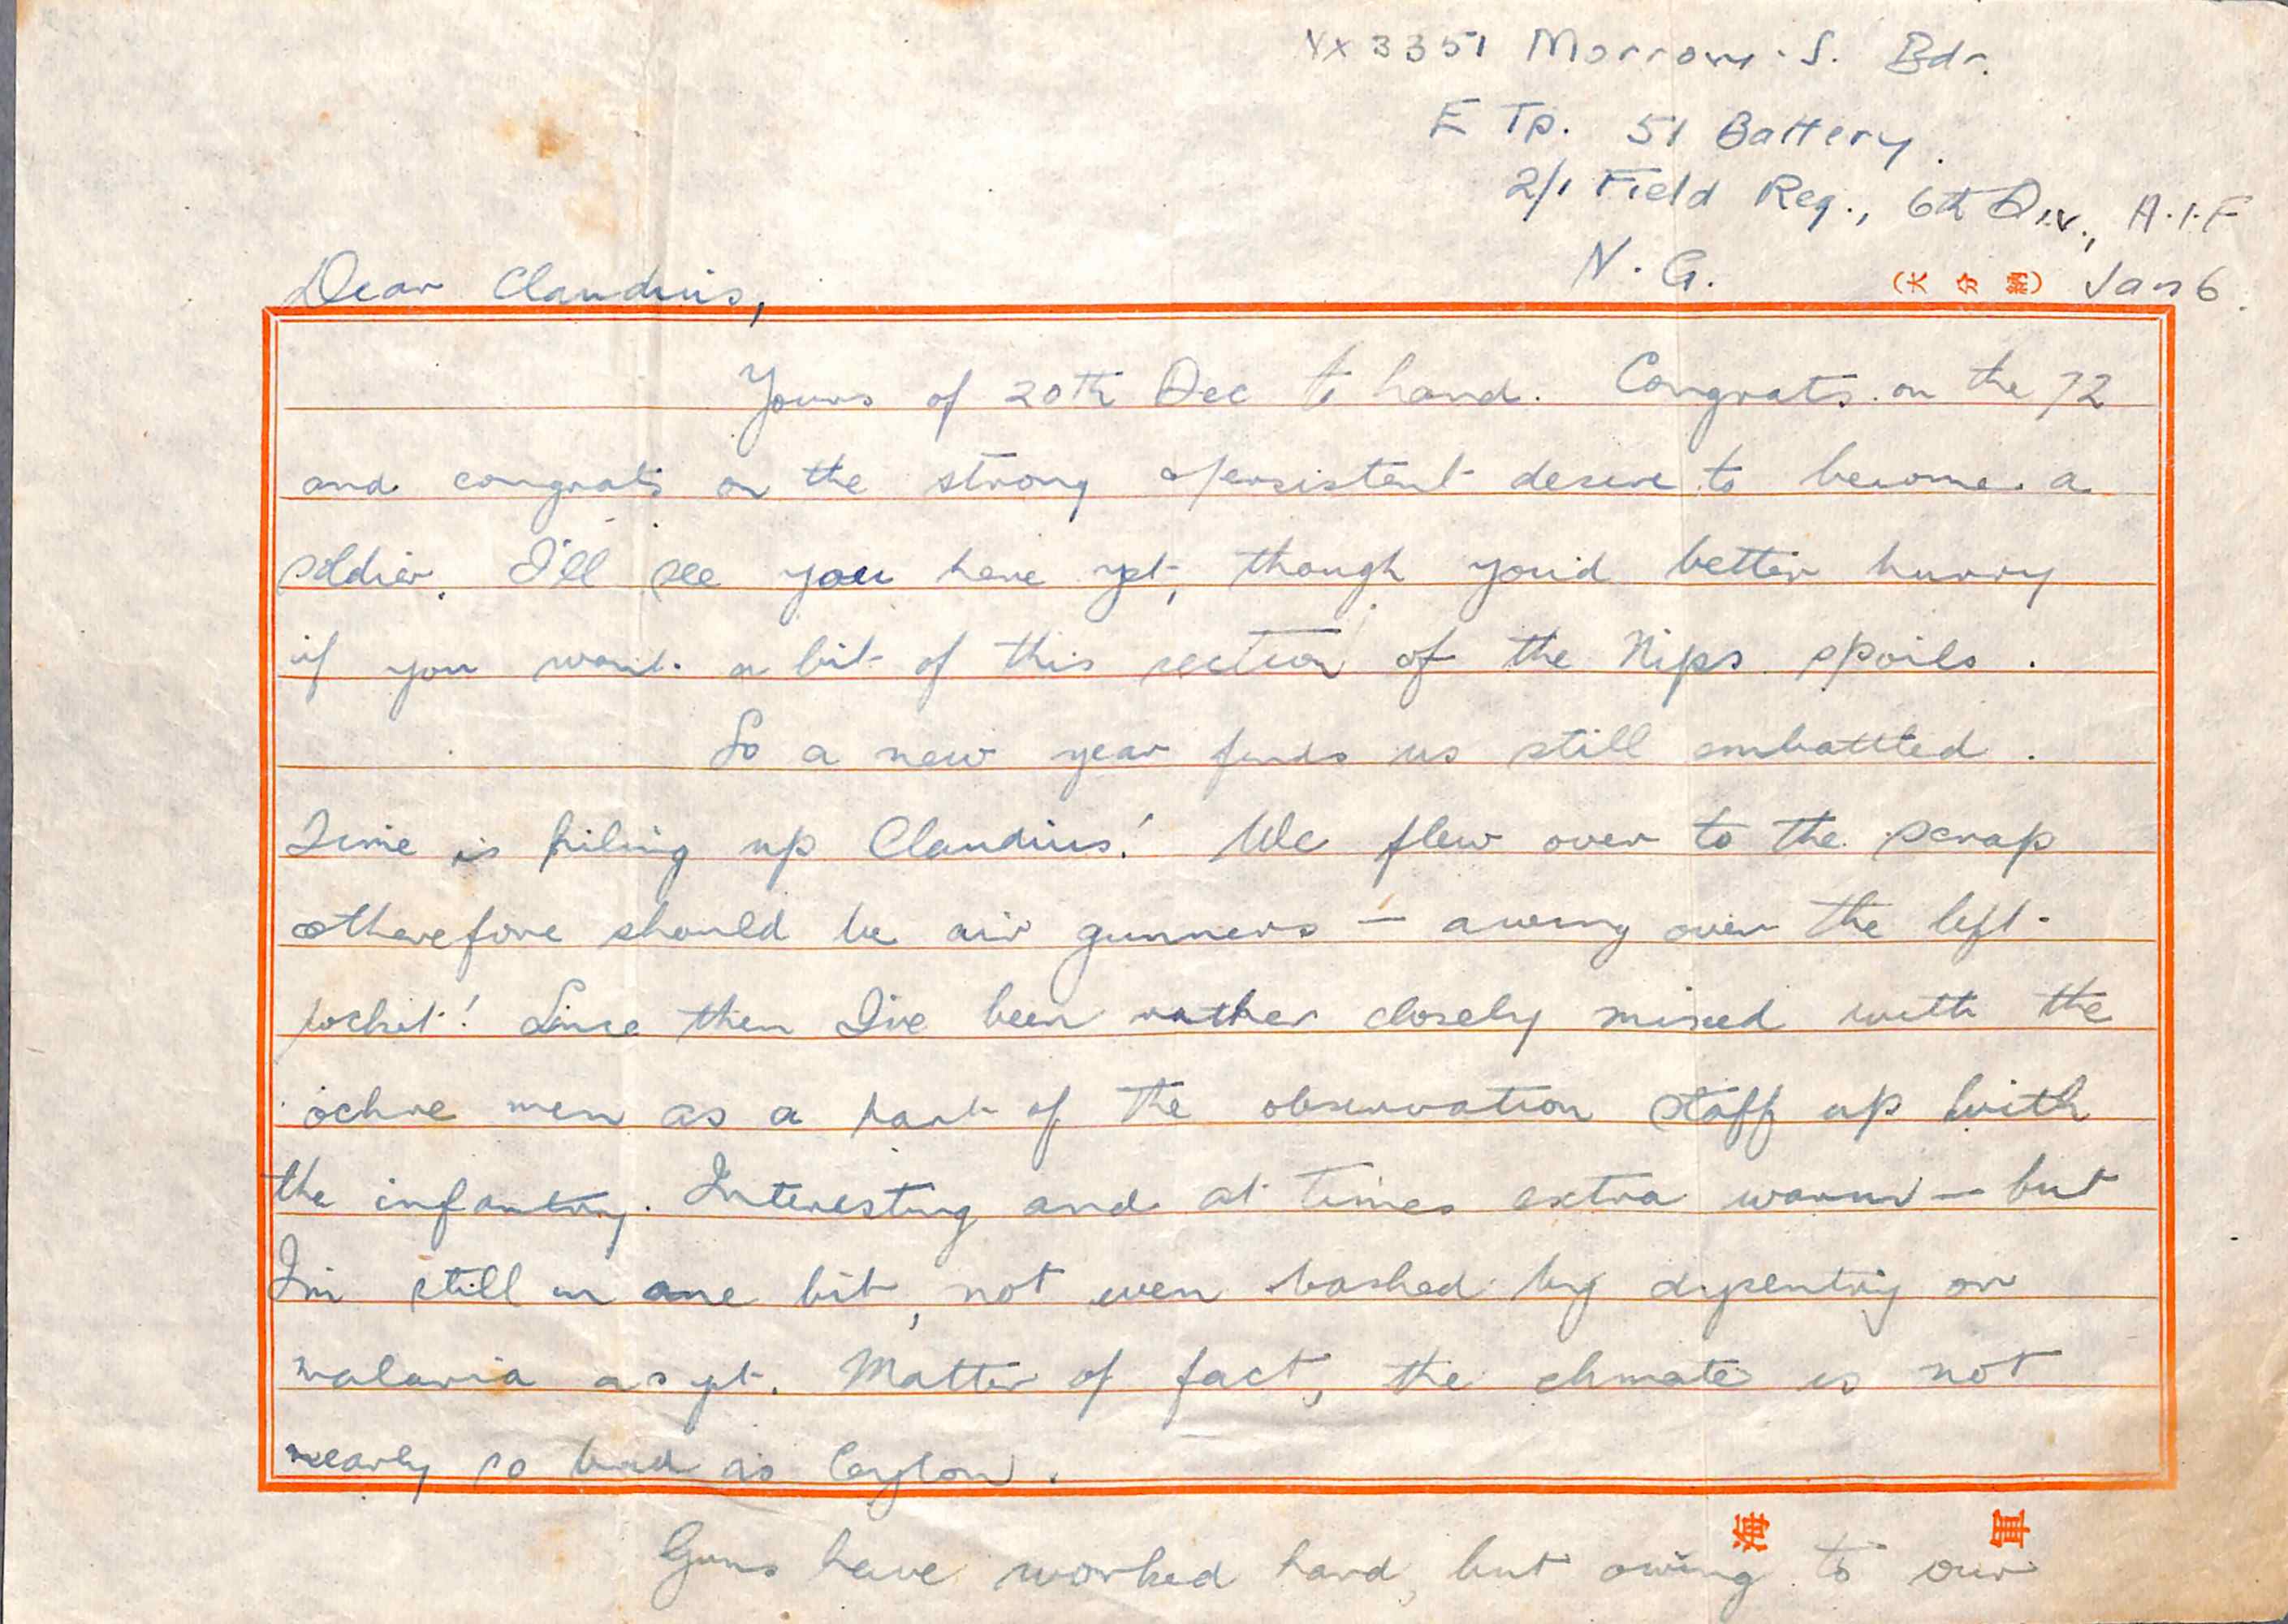 NX 3351 Morrow. S. Bdr.
E Tp. 51 Battery.
2/1 Field Reg., 6th Div., A.I.F
N. G.
(大分納) Jan 6.
Dear Claudius,
Yours of 20th Dec to hand. Congrats. on the 72
and congrats on the strong & persistent desire to become a
soldier. I'll see you here yet, though you'd better hurry
if you want a bit of this section of the Nips spoils.
So a new year finds us still embattled.
Time is piling up Claudius! We flew over to the scrap
& therefore should be air gunners — a wing over the left
pocket! Since then I've been rather closely mixed with the
ochre men as a part of the observation staff up with
the infantry. Interesting and at times extra warm — but
I'm still in one bit, not even bashed by dysentriy or
malaria as yet. Matter of fact, the climate is not
nearly so bad as Ceylon.
海軍
Guns have worked hard, but owing to our